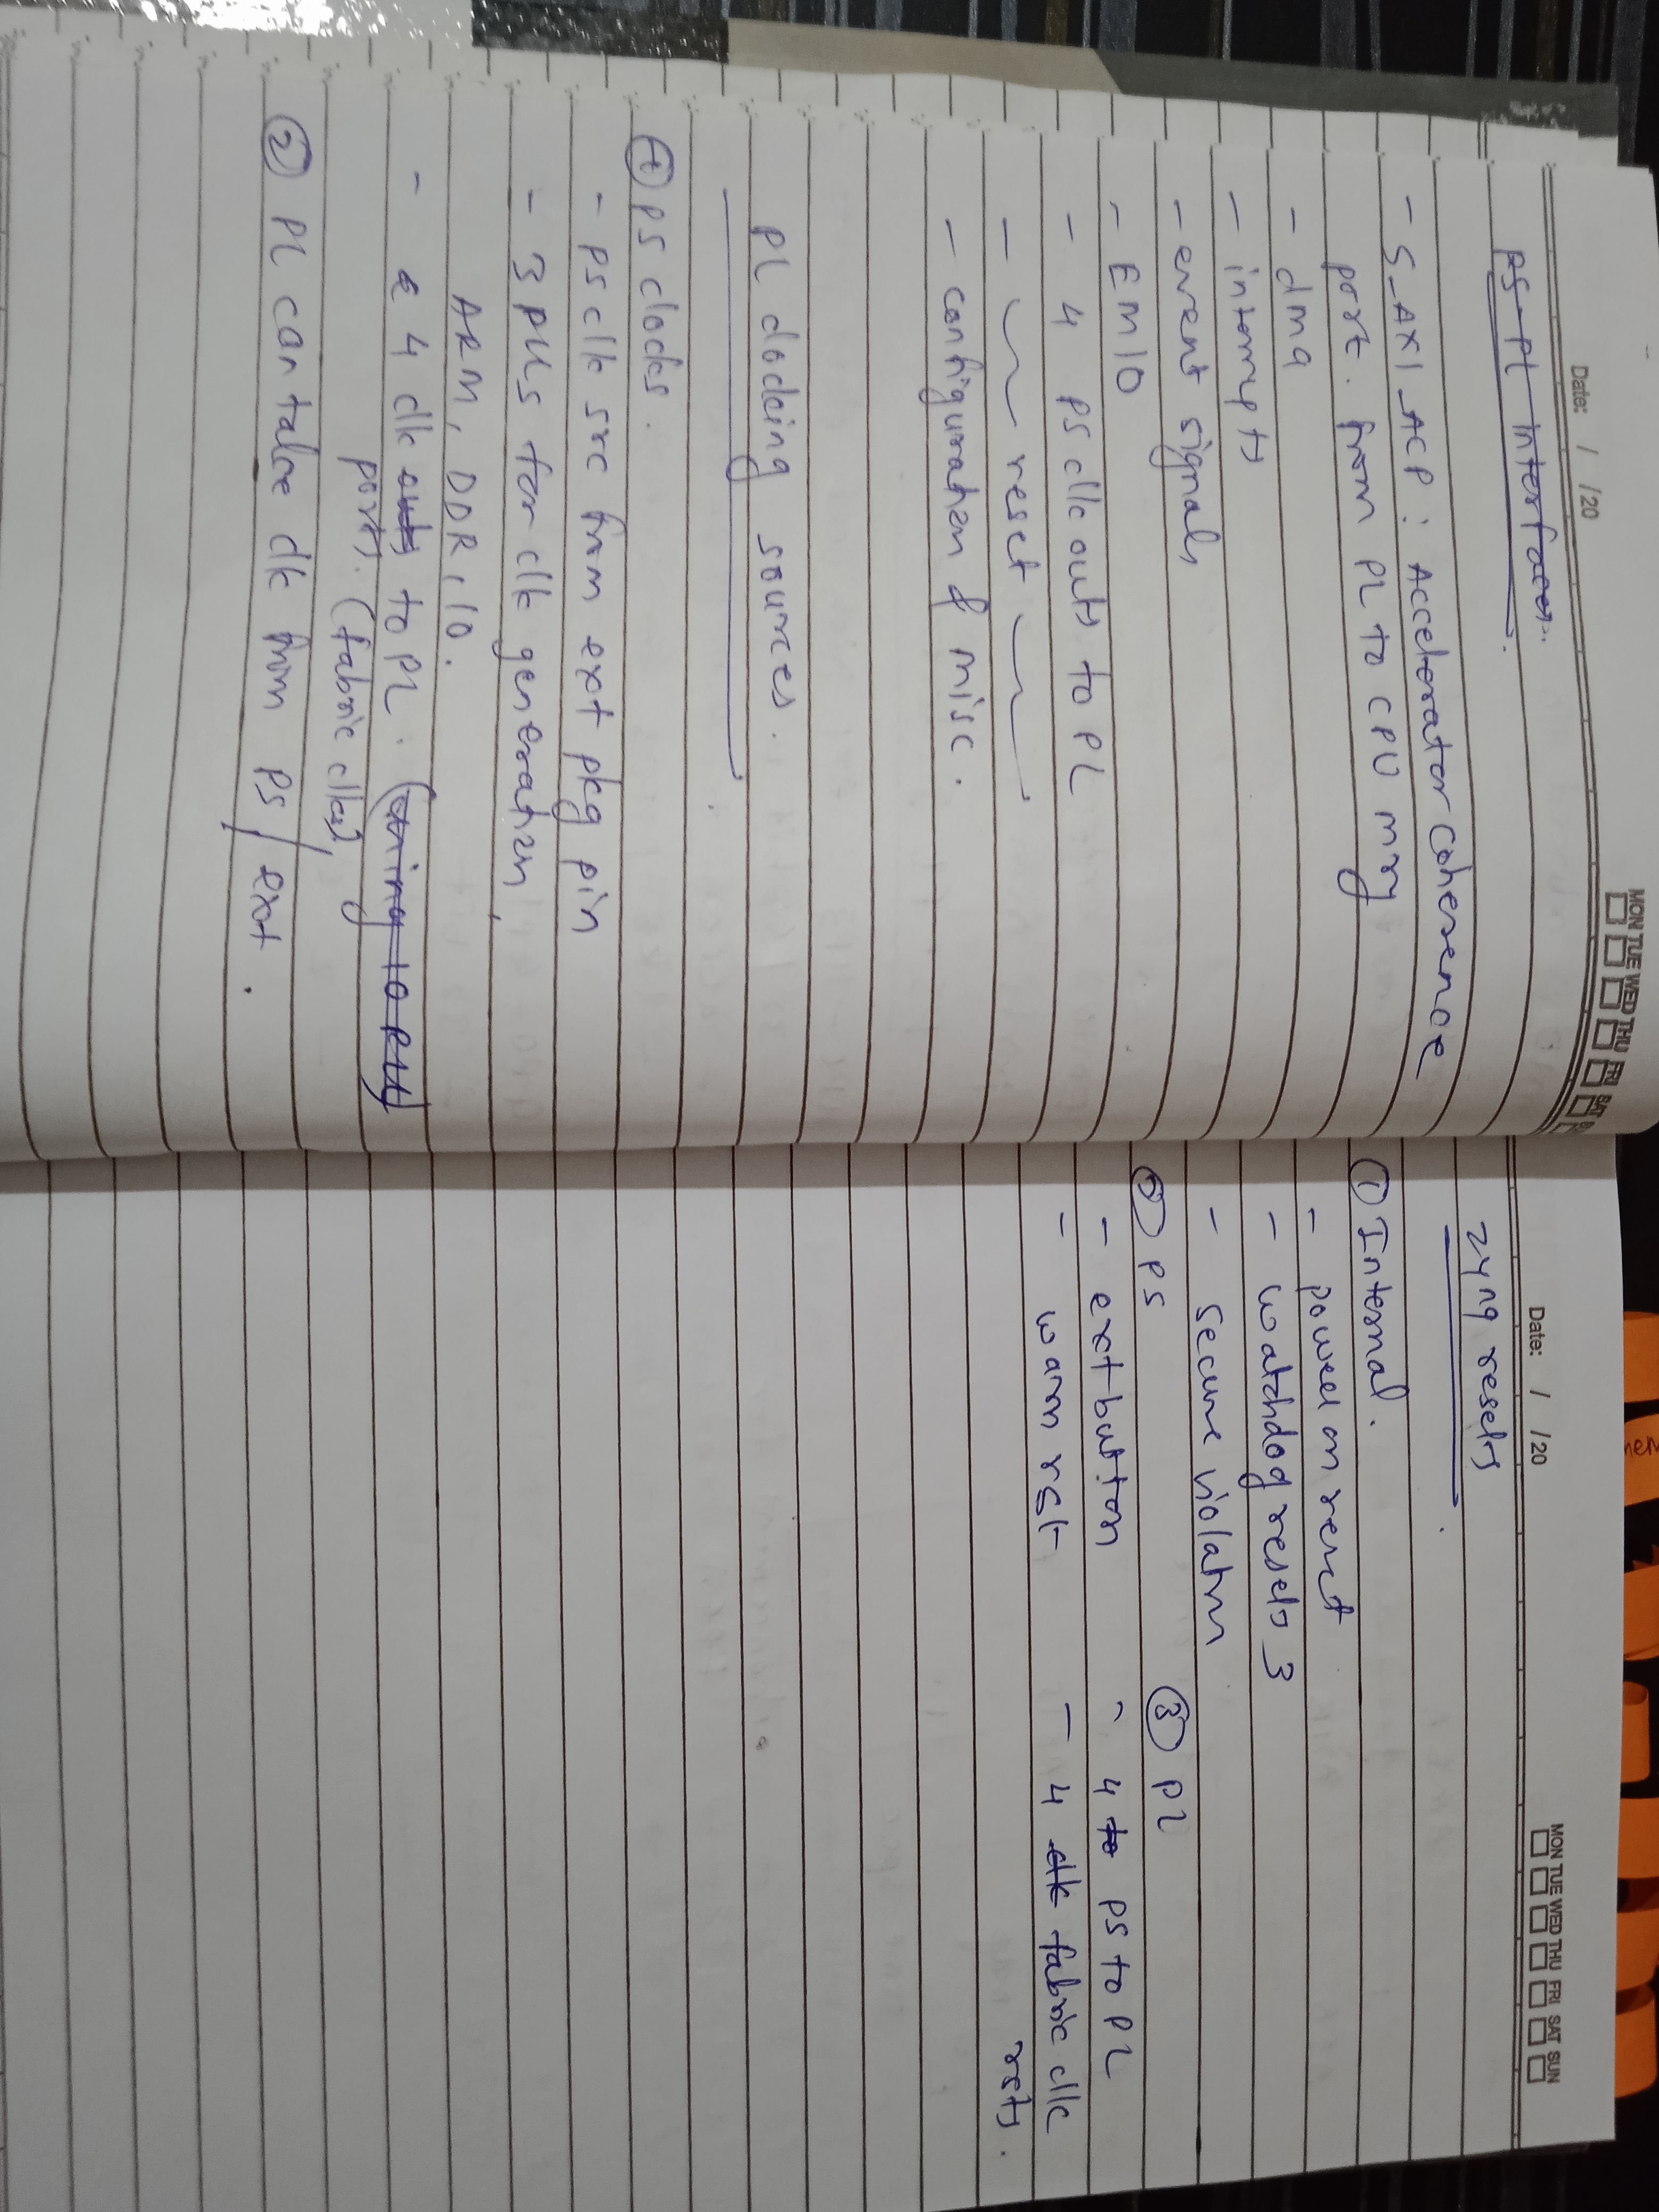 Date: / /20
MON TUE WED THU FRI SAT
PS-PL interfaces.
- S_AXI_ACP: Accelerator coherence
port. from PL to CPU mry
- dma
- interrupts
- event signals
- EMIO
- 4 PS clk outs to PL
- 〃 reset 〃
- configuration & misc.
PL clocking sources.
① PS clocks.
- PS clk src from ext pkg pin
- 3 PLLs for clk generation,
ARM, DDR, IO.
- 4 clk outs to PL.
ports. (fabric clks),
② PL can take clk from PS/ext.
Date: / /20
MON TUE WED THU FRI SAT SUN
zynq resets
① Internal.
- power on reset
- watchdog resets 3
- secure violatn
② PS
- ext button
- warm rst
③ PL
- 4 to PS to PL
- 4 clk fabric clk
rsts.
mem